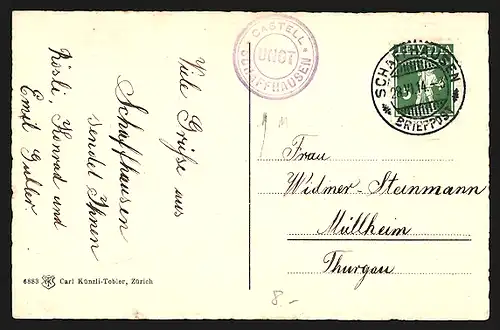 CASTELL *
UNOT
SCHAFFHAUSEN
HELVETIA
SCHAFFHAUSEN
28.VI.14.
* BRIEFPOST *
Viele Grüße aus
Schaffhausen
sendet Ihnen
Rösli, Konrad und
Emil
Frau
Widmer-Steinmann
Müllheim
Thurgau
6883 Carl Künzli-Tobler, Zürich
8.-